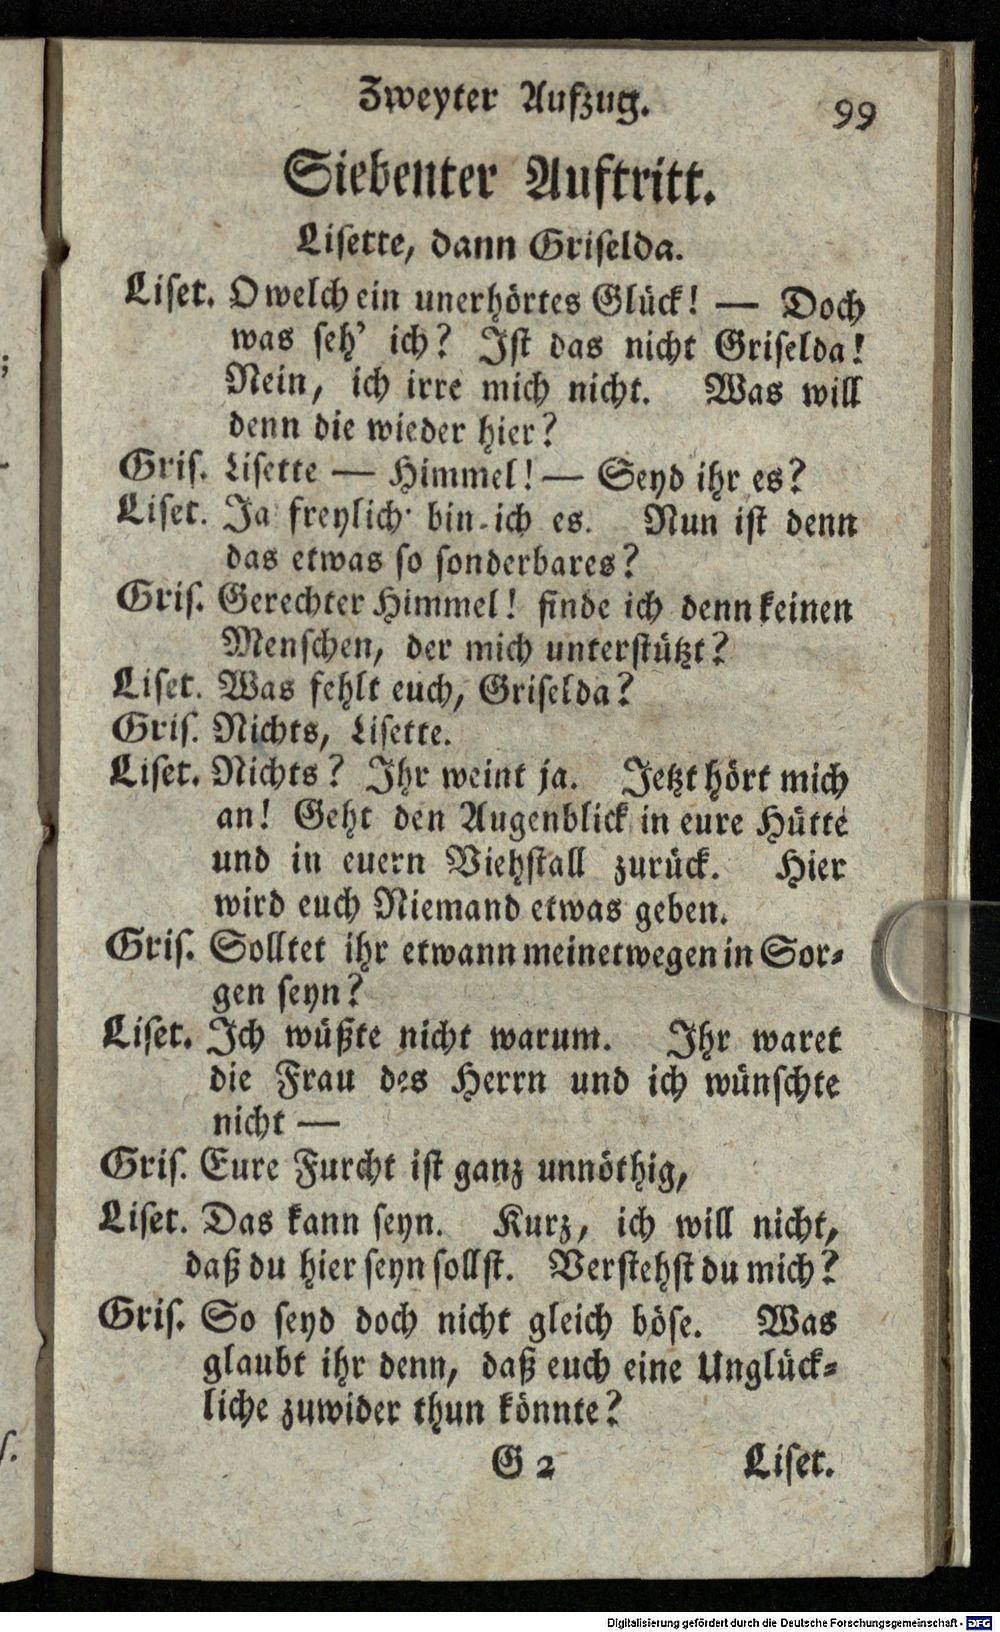 Zweyter Aufzug.
99
Siebenter Auftritt.
Lisette, dann Griselda.
Liset. O welch ein unerhörtes Glück! — Doch
was seh' ich? Ist das nicht Griselda!
Nein, ich irre mich nicht. Was will
denn die wieder hier?
Gris. Lisette — Himmel! — Seyd ihr es?
Liset. Ja freylich bin ich es. Nun ist denn
das etwas so sonderbares?
Gris. Gerechter Himmel! finde ich denn keinen
Menschen, der mich unterstützt?
Liset. Was fehlt euch, Griselda?
Gris. Nichts, Lisette.
Liset. Nichts? Ihr weint ja. Jetzt hört mich
an! Geht den Augenblick in eure Hütte
und in euern Viehstall zurück. Hier
wird euch Niemand etwas geben.
Gris. Solltet ihr etwann meinetwegen in Sor-
gen seyn?
Liset. Ich wüßte nicht warum. Ihr waret
die Frau des Herrn und ich wünschte
nicht —
Gris. Eure Furcht ist ganz unnöthig,
Liset. Das kann seyn. Kurz, ich will nicht,
daß du hier seyn sollst. Verstehst du mich?
Gris. So seyd doch nicht gleich böse. Was
glaubt ihr denn, daß euch eine Unglück-
liche zuwider thun könnte?
G 2 Liset.
;
-
s.
Digitalisierung gefördert durch die Deutsche Forschungsgemeinschaft - DFG